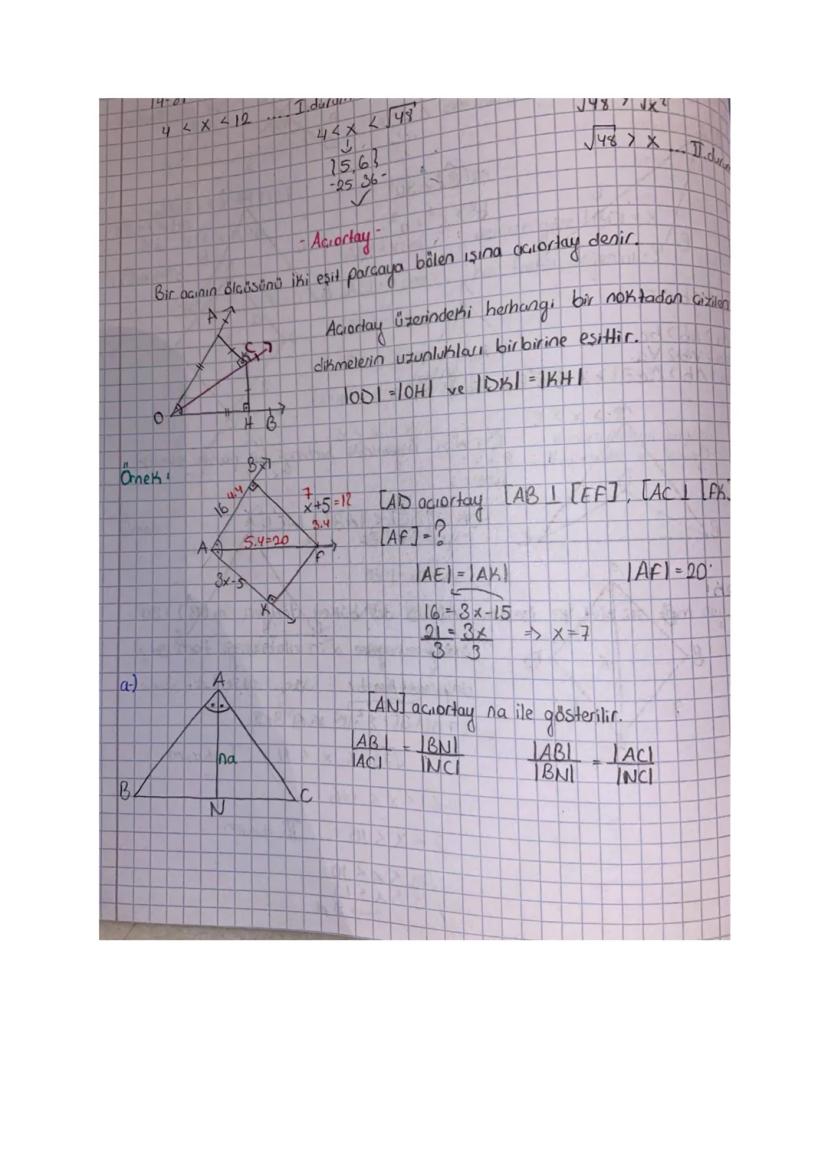 4 < x < 12 .... I.durum
4 < x < √48
{5,6}
25 36
√48 > √x²
√48 > x ... II.durum
- Açıortay -
Bir açının ölçüsünü iki eşit parçaya bölen ışına açıortay denir.
A
C
O
H B
Açıortay üzerindeki herhangi bir noktadan çizilen
dikmelerin uzunlukları birbirine eşittir.
|OD| = |OH| ve |DK| = |KH|
Örnek:
B
16 4.4
7
x+5=12
3.4
A 5.4=20 F
3x-5
K
[AD açıortay [AB ⊥ [EF], [AC ⊥ [FK]
[AF]=?
|AE| = |AK|
|AF| = 20
16 = 3x-15
21 = 3x ⇒ x=7
3 3
a-)
A
na
B N C
[AN] açıortay na ile gösterilir.
|AB| = |BN|
|AC| |NC|
|AB| = |AC|
|BN| |NC|